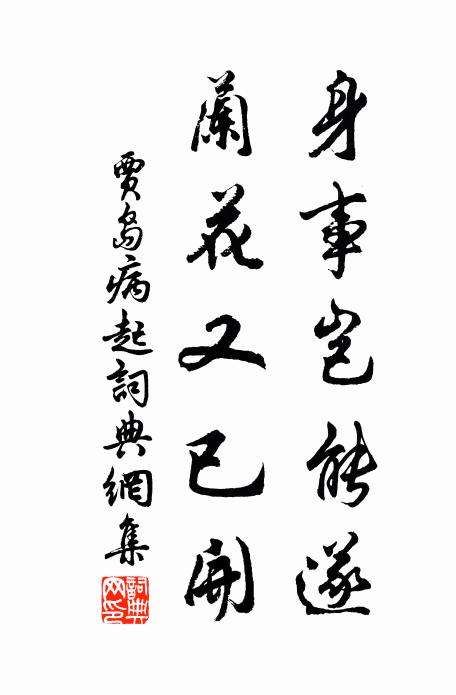 身事豈能遂
蘭花又已開
賈島病起詞典網集
詞典網印